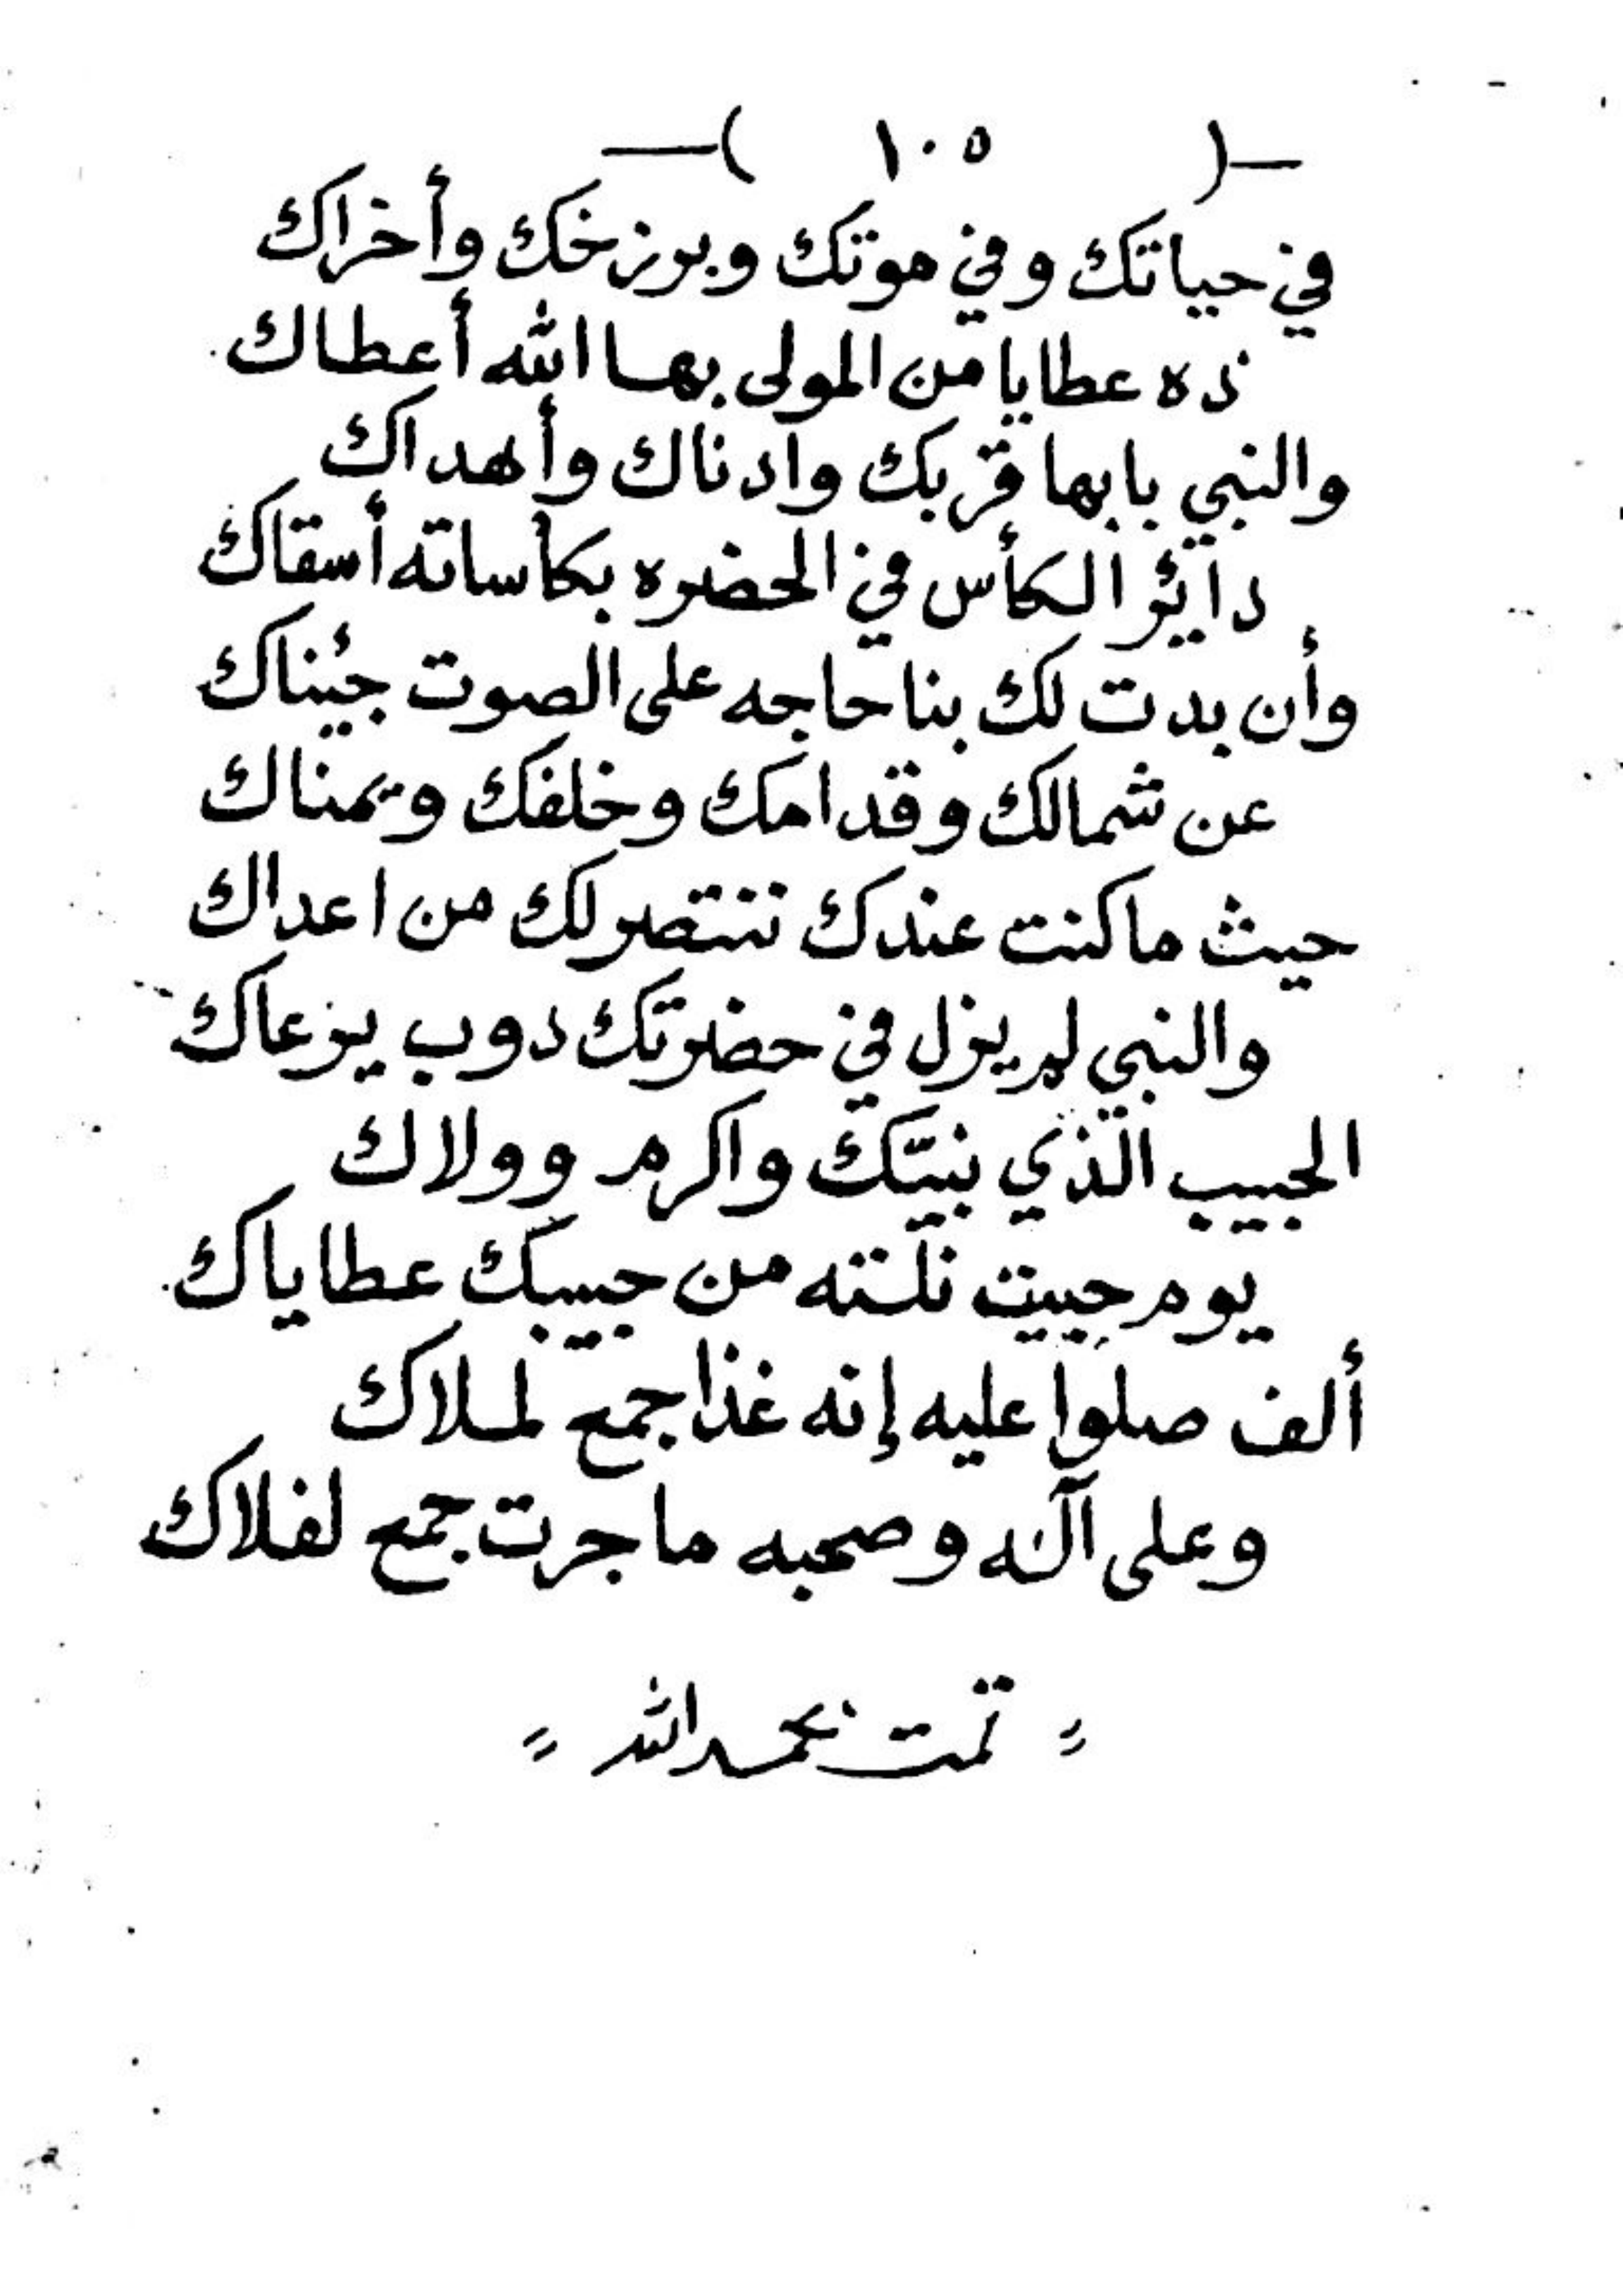 —( ١٠٥ )—
في حياتك وفي موتك وبرزخك وأخراك
ذه عطايا من المولى بها الله أعطاك
والنبي بابها قربك وادناك وأهداك
دائر الكأس في الحضره بكأساته أسقاك
وأن بدت لك بنا حاجه على الصوت جئناك
عن شمالك وقدامك وخلفك ويمناك
حيث ما كنت عندك ننتصر لك من اعداك
والنبي لم يزل في حضرتك دوب يرعاك
الحبيب الذي نبيّك واكرم وولاك
يوم جيت نلته من حبيبك عطاياك
ألف صلوا عليه إنه غذا جمع لملاك
وعلى آله وصحبه ما جرت جمع لفلاك
= تمت بحمد الله =